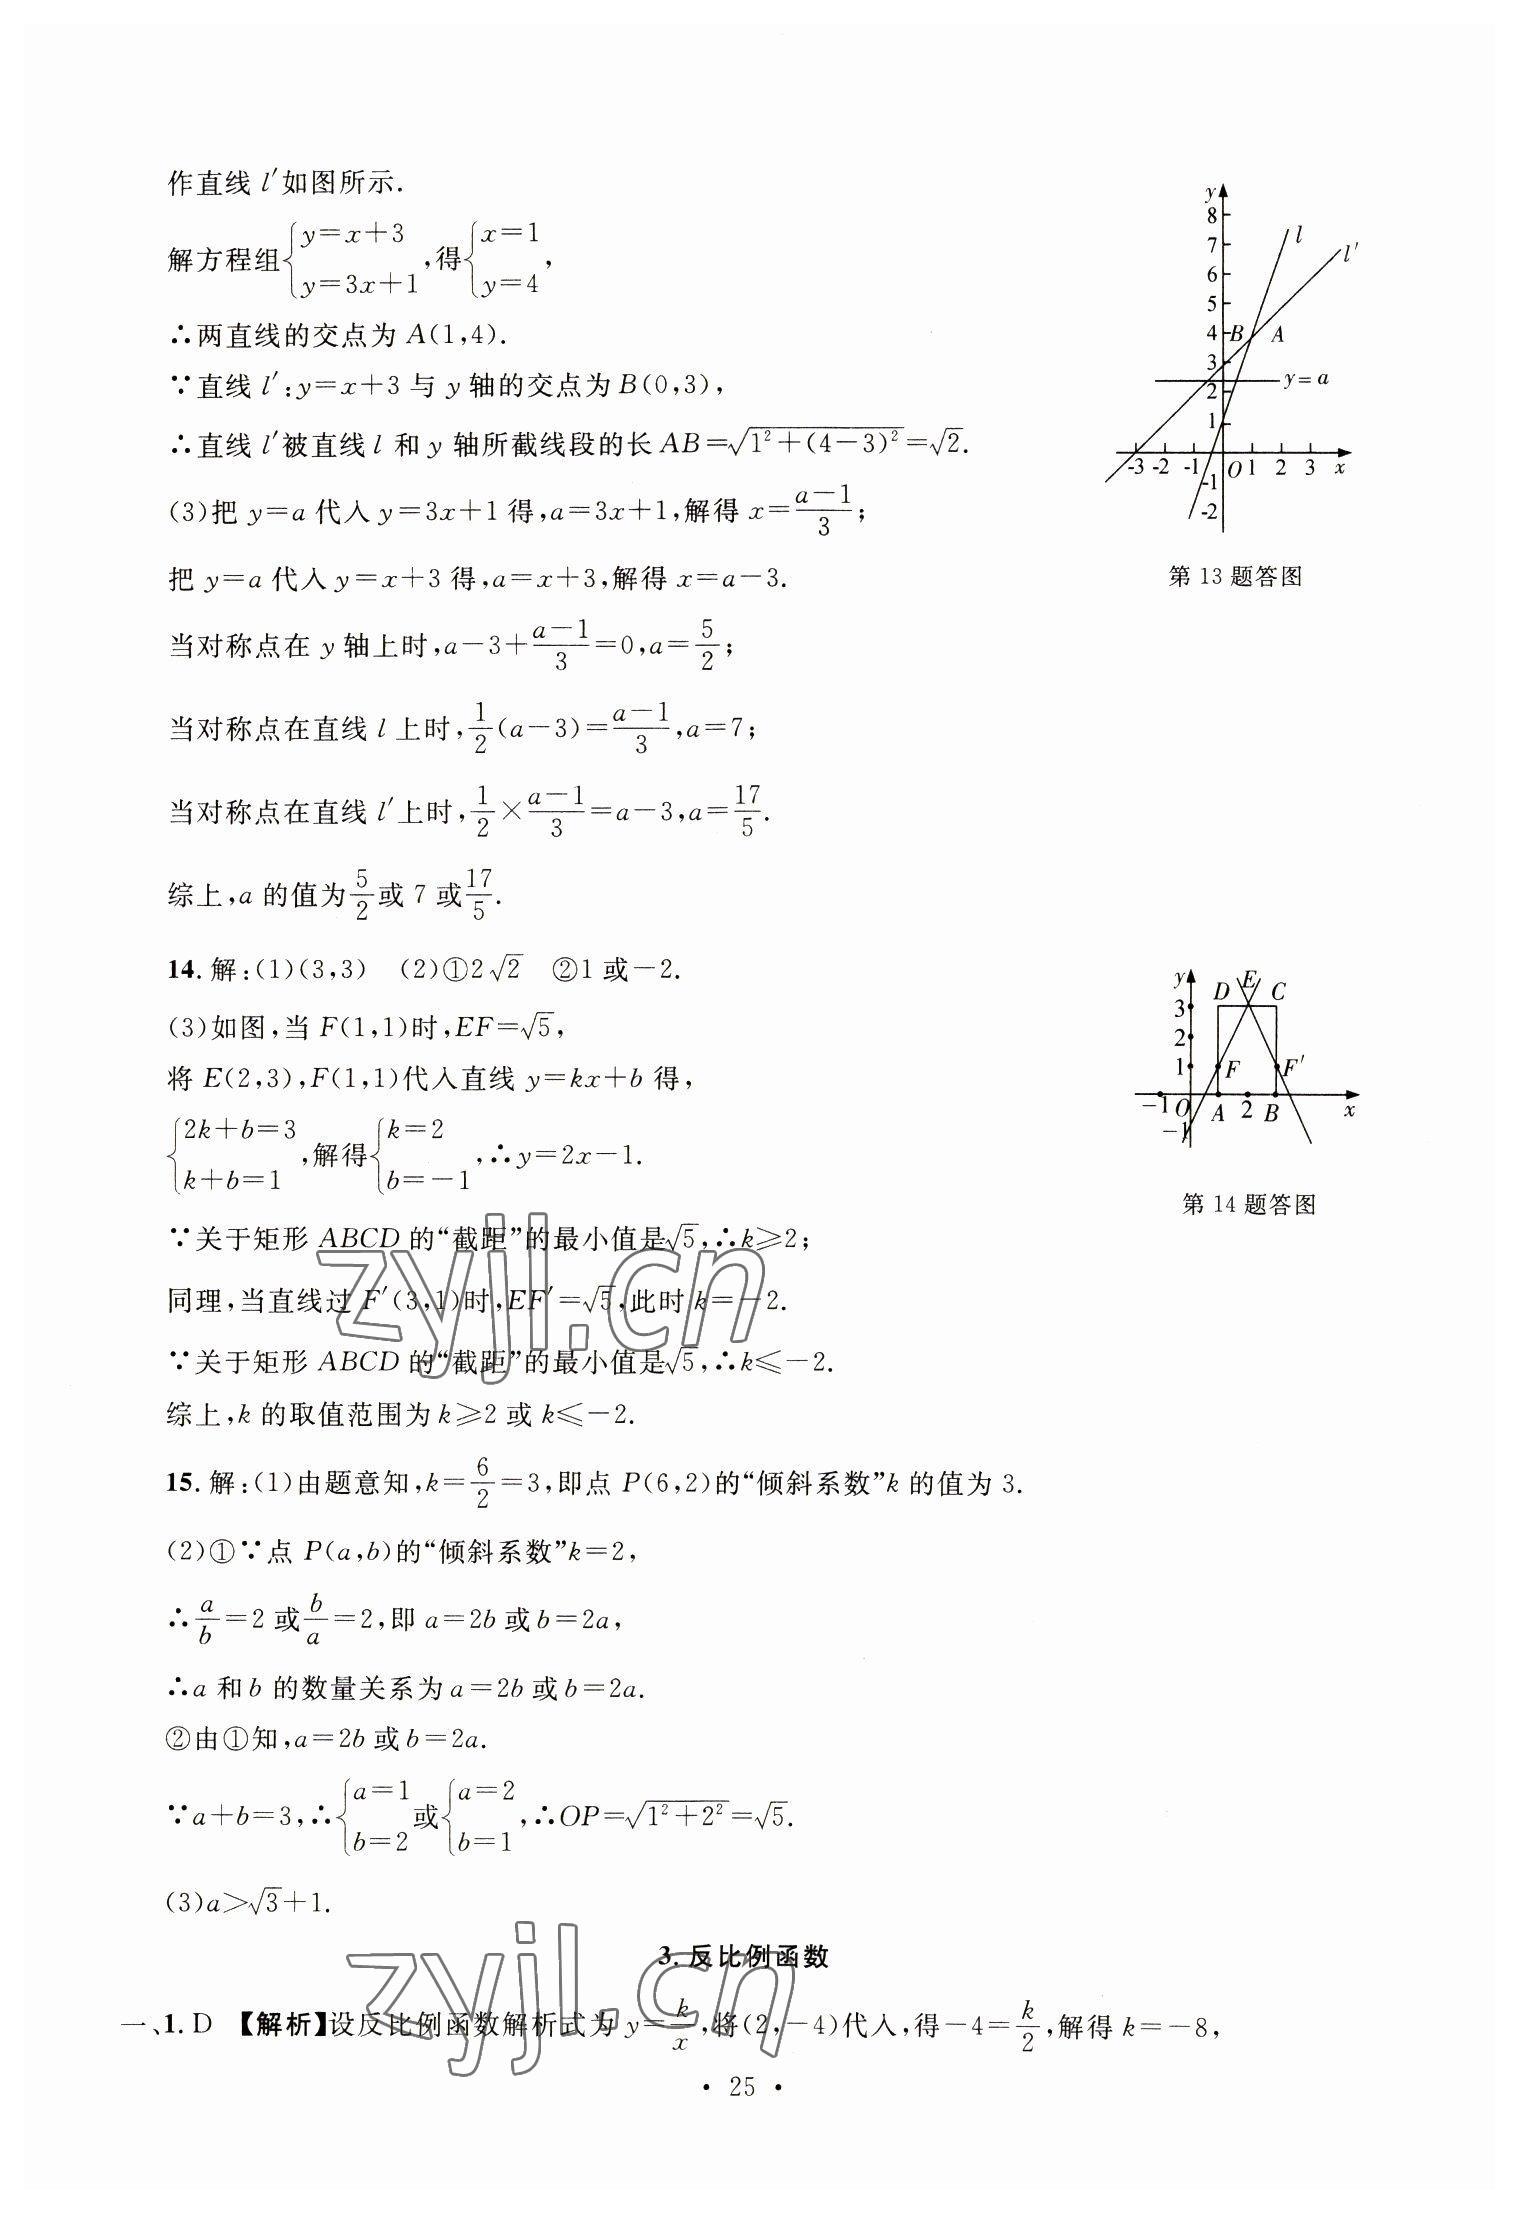 作直线 l′如图所示.
解方程组{y=x+3 y=3x+1,得{x=1 y=4,
∴两直线的交点为 A(1,4).
∵直线 l′:y=x+3 与 y 轴的交点为 B(0,3),
∴直线 l′被直线 l 和 y 轴所截线段的长 AB=√(1²+(4-3)²)=√2.
(3)把 y=a 代入 y=3x+1 得,a=3x+1,解得 x=(a-1)/3;
把 y=a 代入 y=x+3 得,a=x+3,解得 x=a-3.
当对称点在 y 轴上时,a-3+(a-1)/3=0,a=5/2;
当对称点在直线 l 上时,1/2(a-3)=(a-1)/3,a=7;
当对称点在直线 l′上时,1/2×(a-1)/3=a-3,a=17/5.
综上,a 的值为5/2或 7 或17/5.
y
8
7
6
5
4
3
2
1
-1
-2
-3 -2 -1 O 1 2 3 x
l
l′
B A
y=a
第 13 题答图
14. 解:(1)(3,3) (2)①2√2 ②1 或-2.
(3)如图,当 F(1,1)时,EF=√5,
将 E(2,3),F(1,1)代入直线 y=kx+b 得,
{2k+b=3 k+b=1,解得{k=2 b=-1,∴y=2x-1.
∵关于矩形 ABCD 的“截距”的最小值是√5,∴k≥2;
同理,当直线过 F′(3,1)时,EF′=√5,此时 k=-2.
∵关于矩形 ABCD 的“截距”的最小值是√5,∴k≤-2.
综上,k 的取值范围为 k≥2 或 k≤-2.
y
D E C
3
2
1
F F′
-1 O A 2 B x
-1
第 14 题答图
15. 解:(1)由题意知,k=6/2=3,即点 P(6,2)的“倾斜系数”k 的值为 3.
(2)①∵点 P(a,b)的“倾斜系数”k=2,
∴a/b=2 或b/a=2,即 a=2b 或 b=2a,
∴a 和 b 的数量关系为 a=2b 或 b=2a.
②由①知,a=2b 或 b=2a.
∵a+b=3,∴{a=1 b=2或{a=2 b=1,∴OP=√(1²+2²)=√5.
(3)a>√3+1.
3. 反比例函数
一、1. D 【解析】设反比例函数解析式为 y=k/x,将(2,-4)代入,得-4=k/2,解得 k=-8,
· 25 ·
zyjl.cn
zyjl.cn